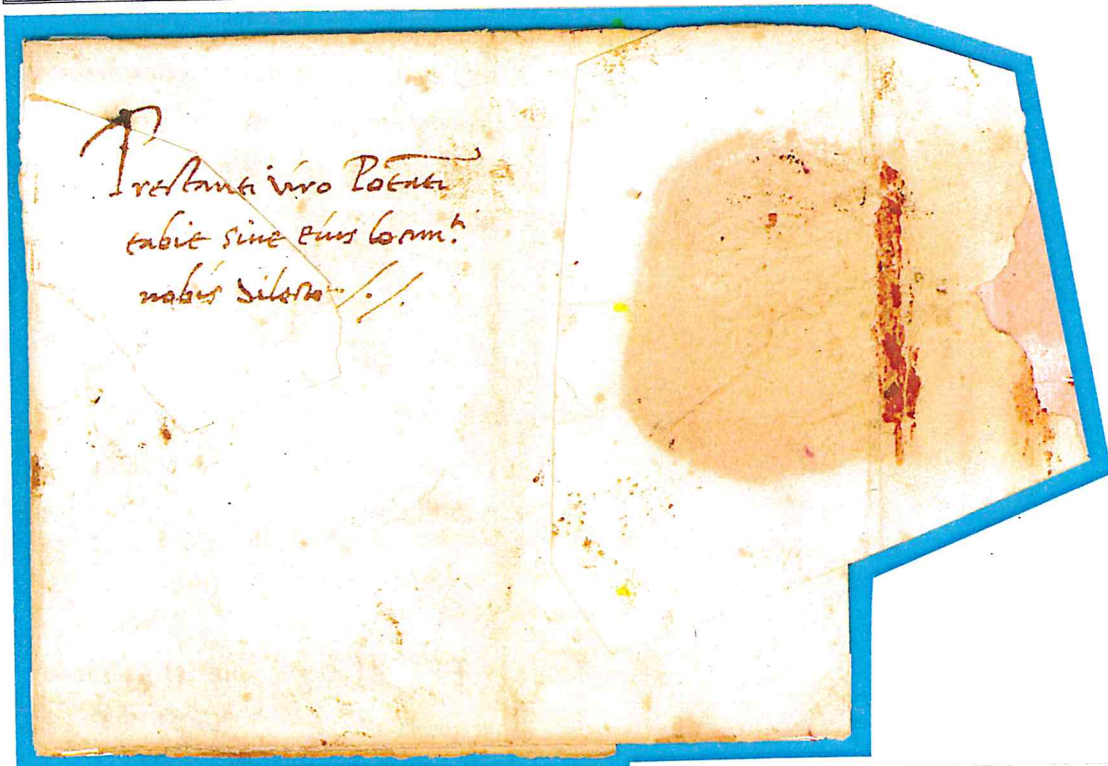 Prestanti viro Potati
tabie sive eius locum.
nobis dilecto /./